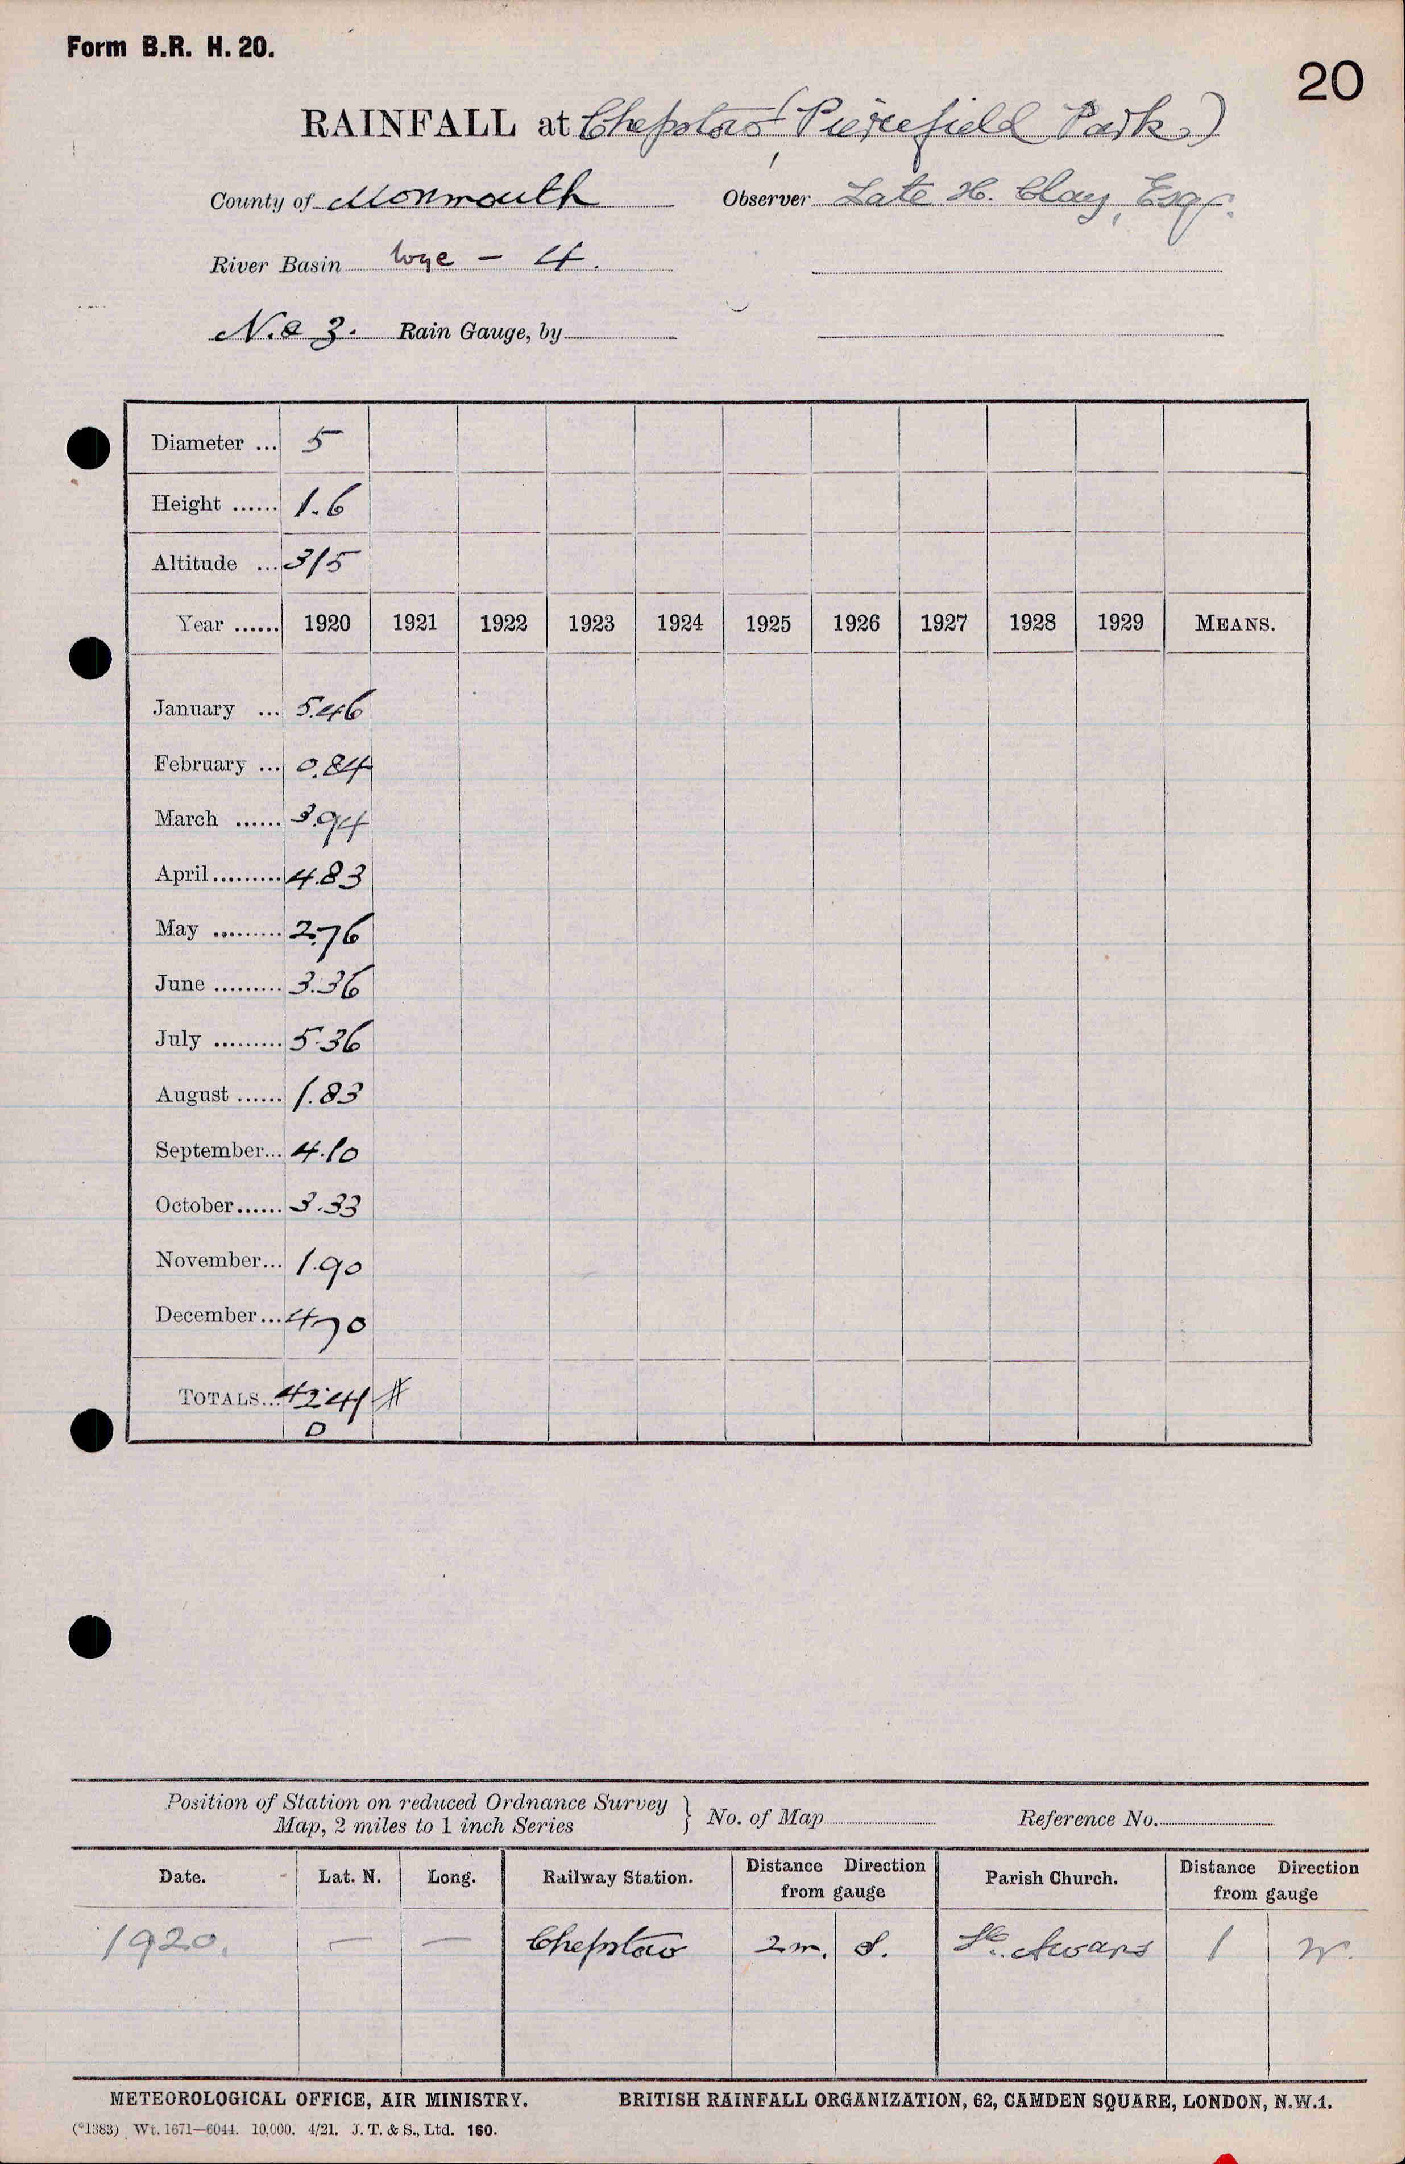 Form B.R. H. 20.
20
RAINFALL at Chepstow (Piercefield Park.)
County of Monmouth Observer Late H. Clay, Esqr.
River Basin Wye - 4.
No 3. Rain Gauge, by
Diameter ... 5
Height ...... 1.6
Altitude ... 315
Year ...... 1920 1921 1922 1923 1924 1925 1926 1927 1928 1929 MEANS.
January ... 5.46
February ... 0.84
March ...... 3.94
April ......... 4.83
May ......... 2.76
June ......... 3.36
July ......... 5.36
August ...... 1.83
September... 4.10
October...... 3.33
November... 1.90
December... 4.70
TOTALS... 42.41 #
D
Position of Station on reduced Ordnance Survey
Map, 2 miles to 1 inch Series } No. of Map Reference No.
Date. Lat. N. Long. Railway Station. Distance Direction from gauge Parish Church. Distance Direction from gauge
1920. — — Chepstow 2 m. S. St. Arvans 1 W.
METEOROLOGICAL OFFICE, AIR MINISTRY. BRITISH RAINFALL ORGANIZATION, 62, CAMDEN SQUARE, LONDON, N.W.1.
(*1383) Wt. 1671—6044. 10,000. 4/21. J. T. & S., Ltd. 160.